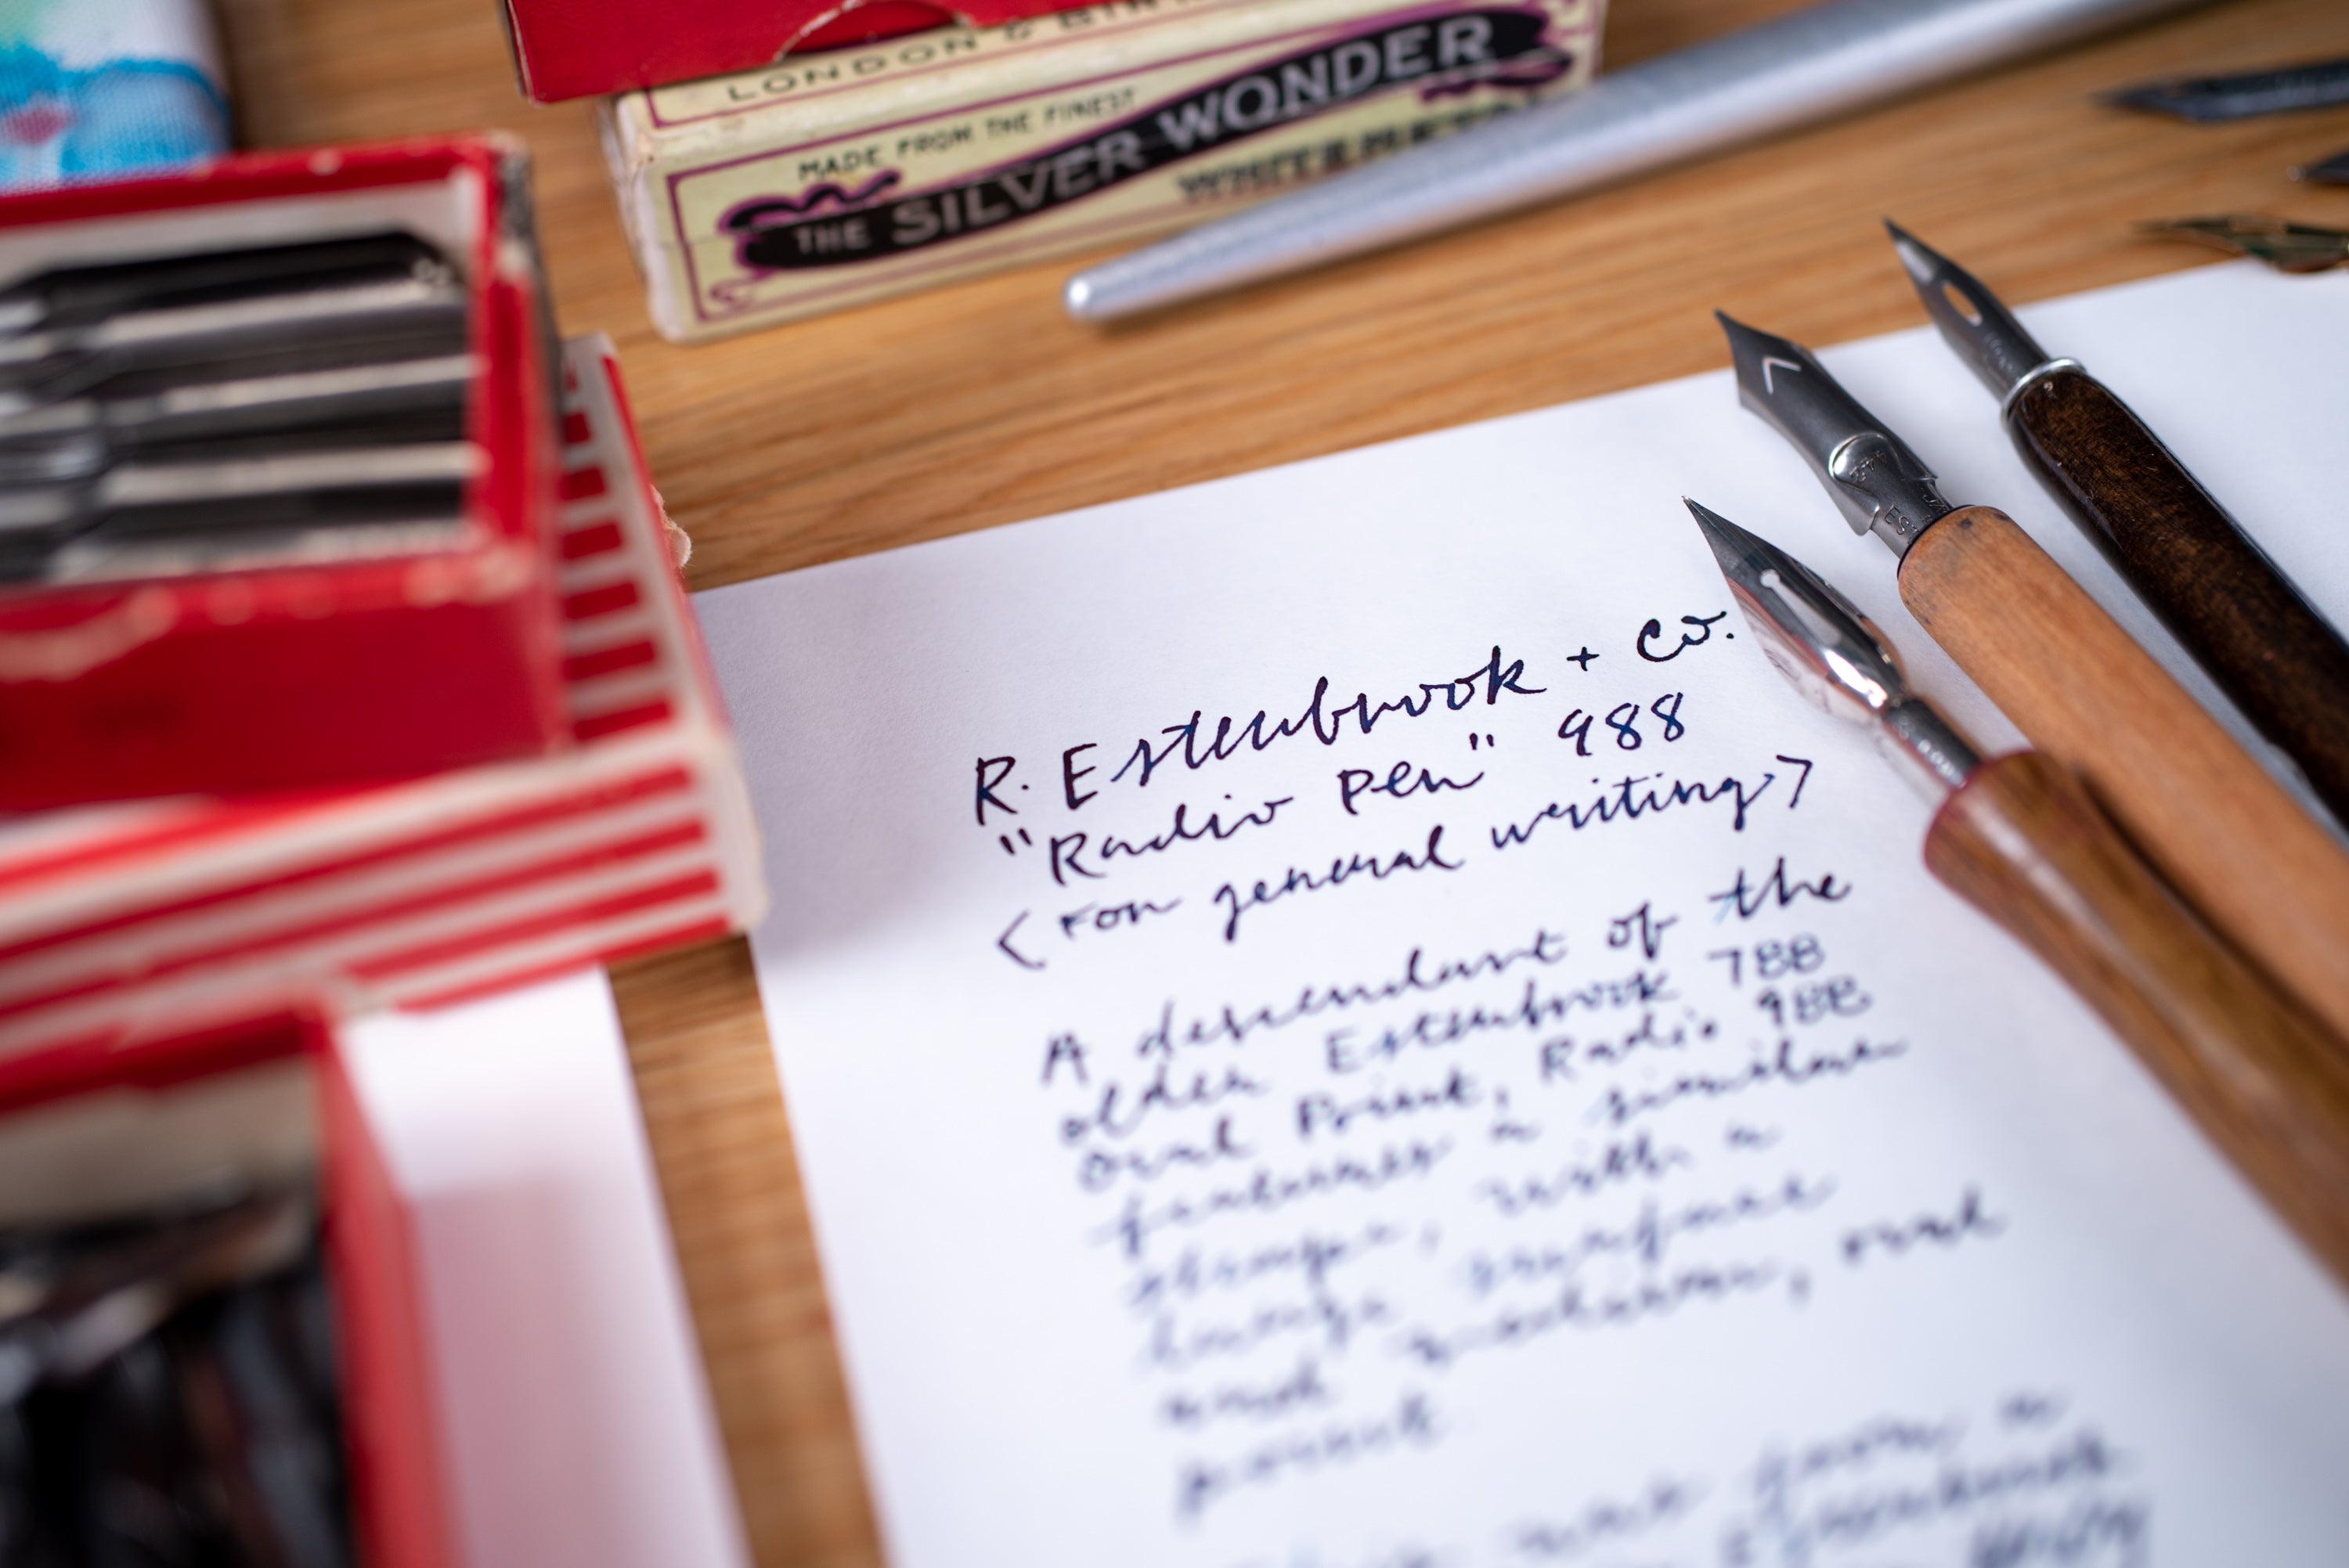 LONDON &
MADE FROM THE FINEST
THE SILVER WONDER
R. Esterbrook + Co.
"Radio Pen" 988
<For general writing>
A descendant of the
older Esterbrook 788
Oval Point, Radio 988
features a similar
shape, with a
large surface
and medium, oval
point.